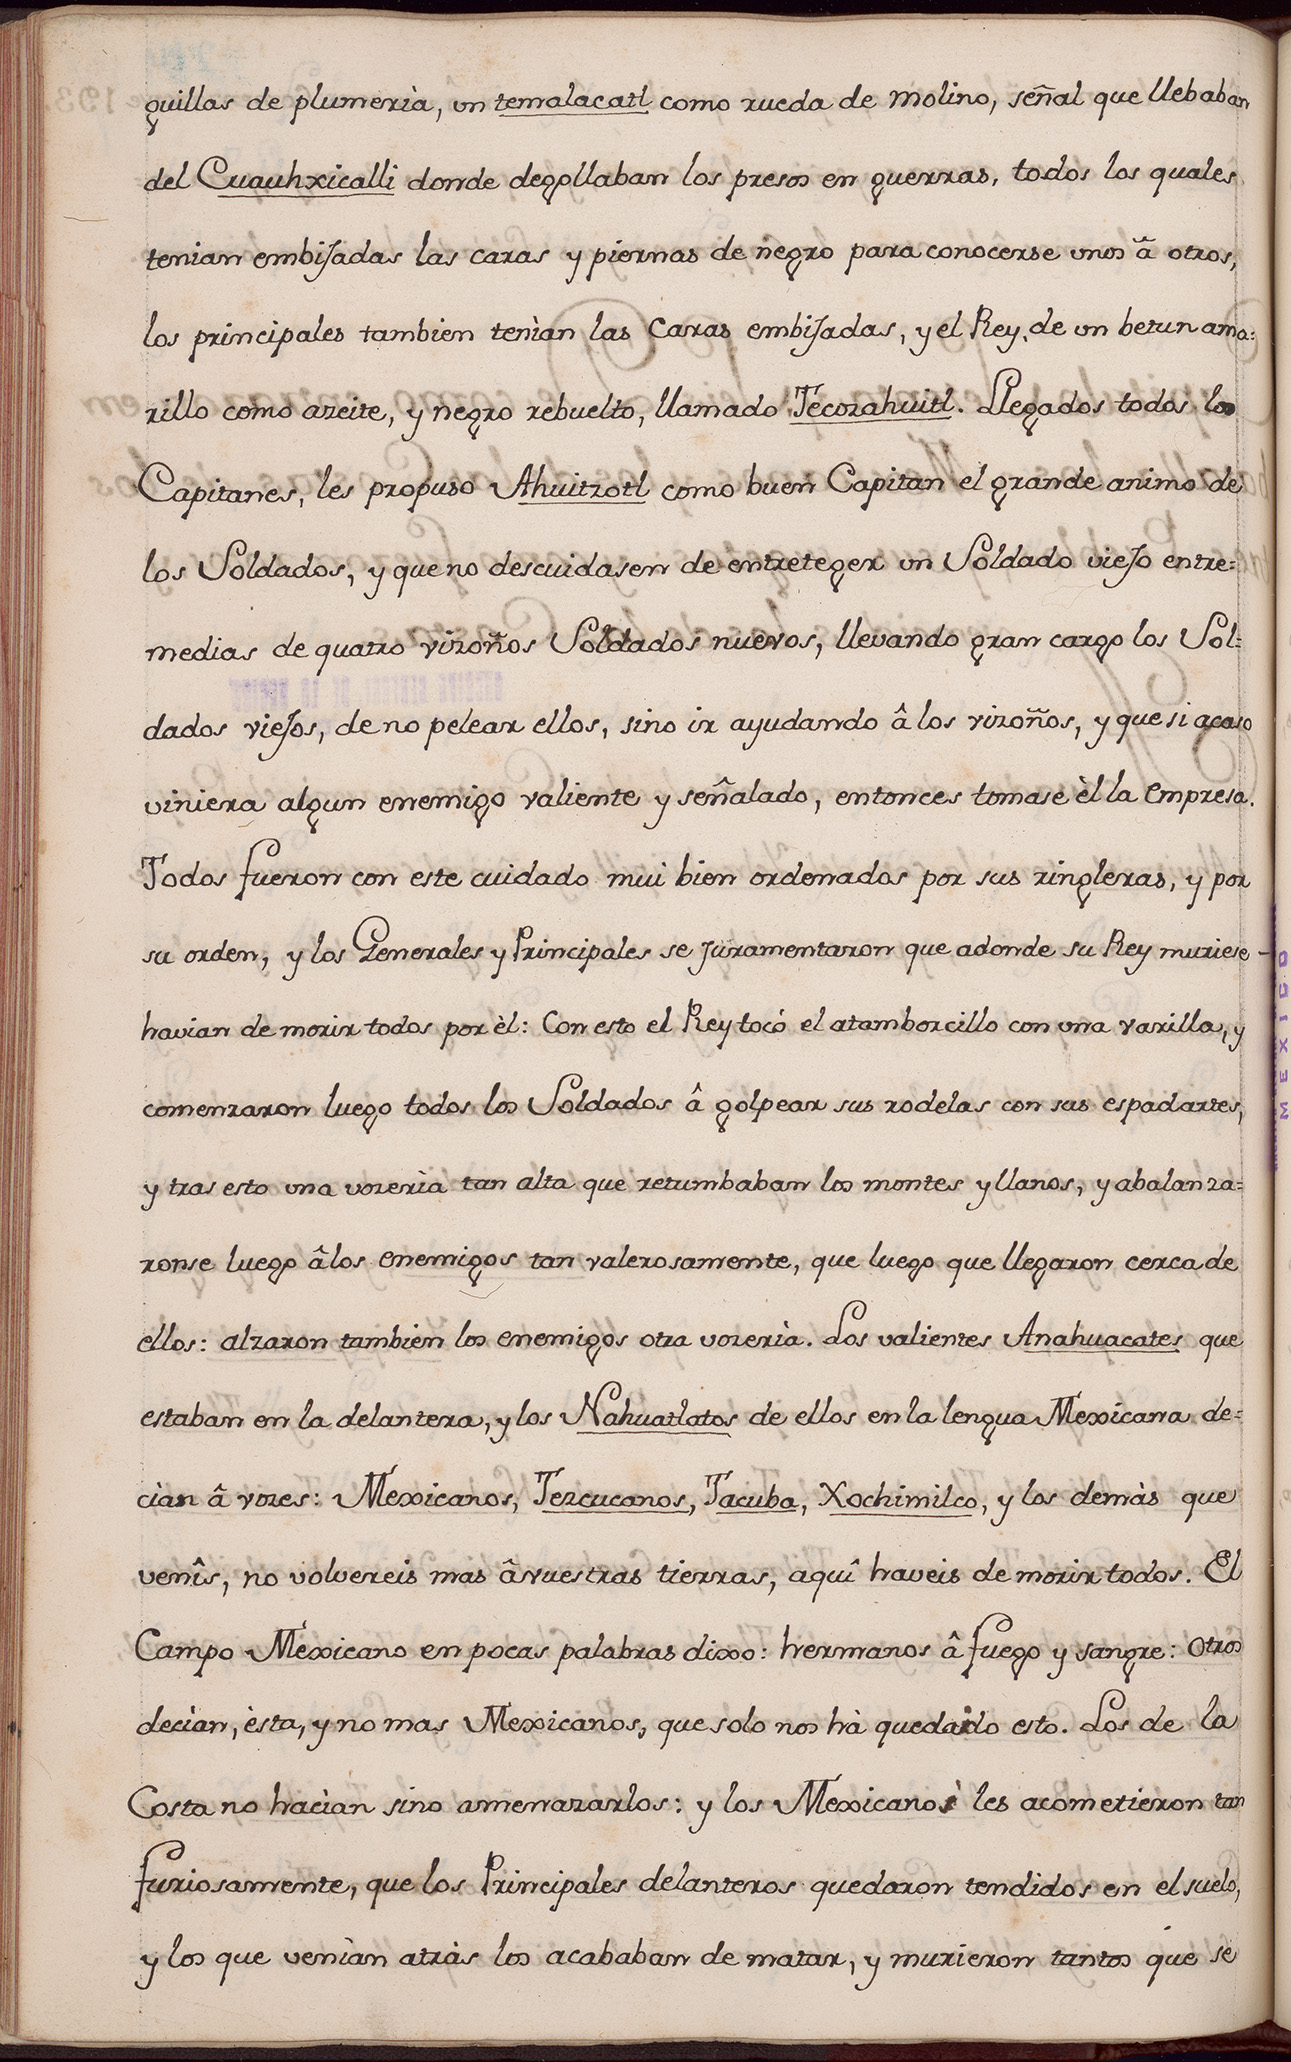 quillas de plumerìa, un temalacatl como rueda de molino, señal que llebaban
del Cuauhxicalli donde degollaban los presos en guerras, todos los quales
tenian embijadas las caras y piernas de negro para conocerse unos â otros,
los principales tambien tenìan las caras embijadas, y el Rey, de un betun ama=
rillo como azeite, y negro rebuelto, llamado Tecozahuitl. Llegados todos los
Capitanes, les propuso Ahuitzotl como buen Capitan el grande animo de
los Soldados, y que no descuidasen de entreteger un Soldado viejo entre=
medias de quatro vizoños Soldados nuevos, llevando gran cargo los Sol=
dados viejos, de no pelear ellos, sino ir ayudando â los vizoños, y que si acaso
viniera algun enemigo valiente y señalado, entonces tomase èl la empresa.
Todos fueron con este cuidado mui bien ordenados por sus ringleras, y por
su orden, y los Generales y Principales se juramentaron que adonde su Rey muriese
havian de morir todos por èl: Con esto el Rey tocó el atamborcillo con una varilla, y
comenzaron luego todos los Soldados â golpear sus rodelas con sus espadartes,
y tras esto una vozerìa tan alta que retumbaban los montes y llanos, y abalanza=
ronse luego â los enemigos tan valerosamente, que luego que llegaron cerca de
ellos: alzaron tambien los enemigos otra vozerìa. Los valientes Anahuacates que
estaban en la delantera, y los Nahuatlatos de ellos en la lengua Mexicana de=
cìan â vozes: Mexicanos, Tezcucanos, Tacuba, Xochimilco, y los demàs que
venîs, no volvereis mas â vuestras tierras, aquî haveis de morir todos. El
Campo Mexicano en pocas palabras dixo: hermanos â fuego y sangre: Otros
decìan, èsta, y no mas Mexicanos, que solo nos hà quedado esto. Los de la
Costa no hacìan sino amenazarlos: y los Mexicanos les acometieron tan
furiosamente, que los Principales delanteros quedaron tendidos en el suelo,
y los que venìan atràs los acababan de matar, y murieron tantos que se
MEXICO